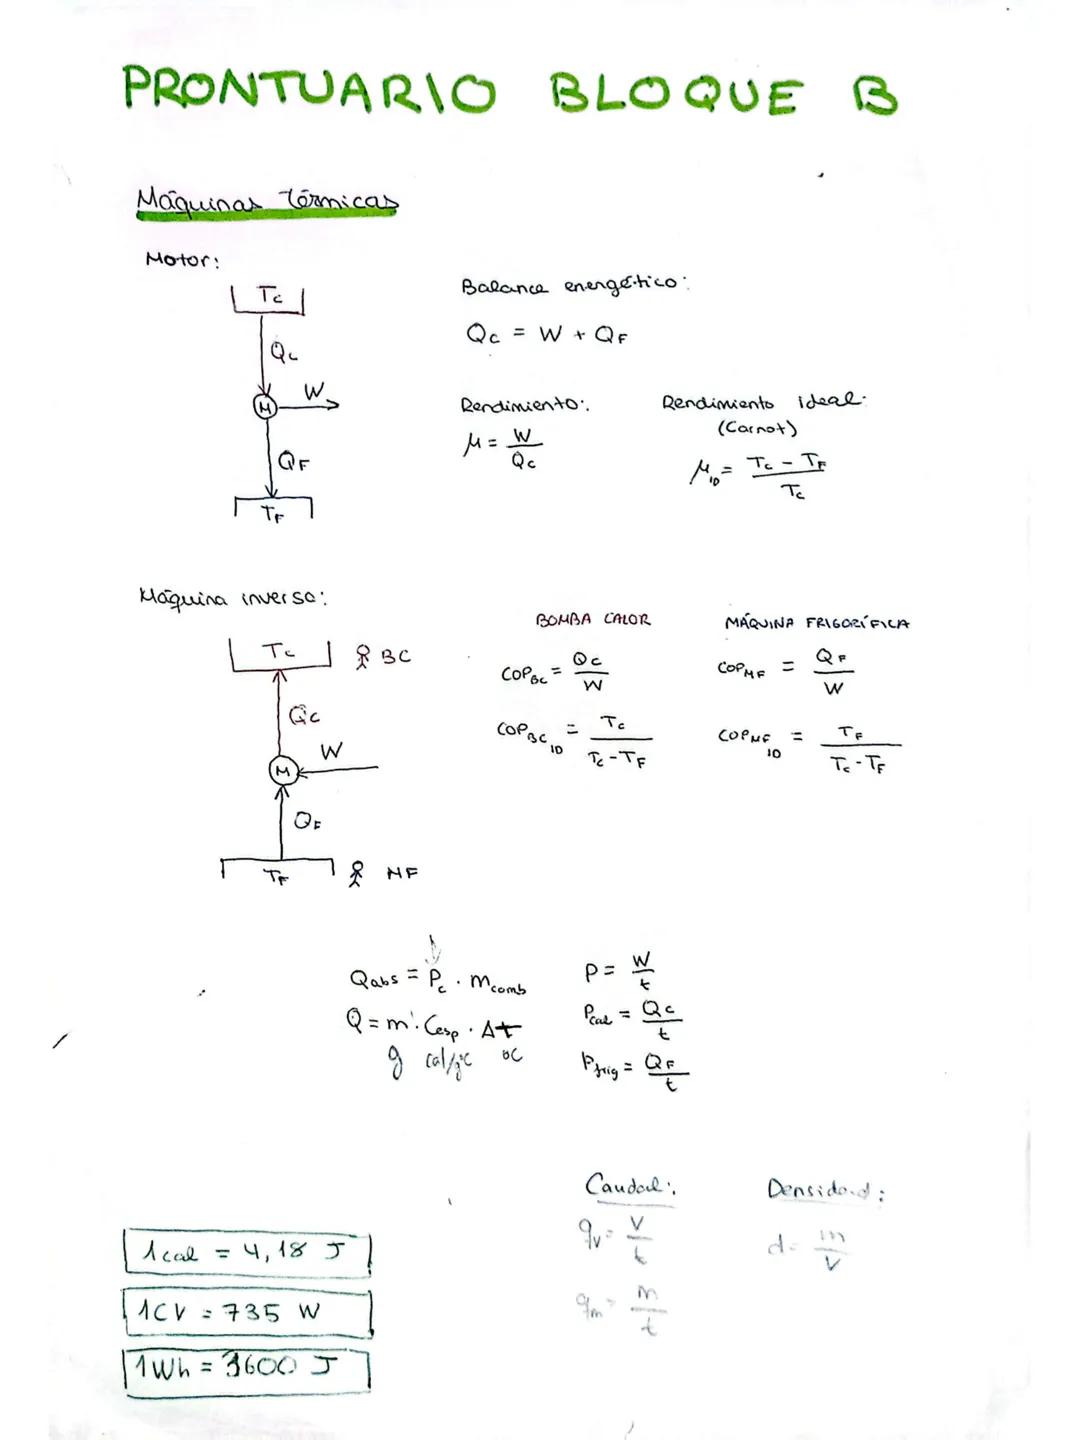 PRONTUARIO BLOQUE B
Máquinas térmicas
Motor:
Tc
Qc
W
M
QF
TF
Balance energético:
Qc = W + QF
Rendimiento:
μ = W / Qc
Rendimiento ideal:
(Carnot)
μID = Tc - TF / Tc
Máquina inversa:
Tc
BC
Qc
W
M
QF
TF
MF
BOMBA CALOR
COPBC = Qc / W
COPBC ID = Tc / Tc - TF
MÁQUINA FRIGORÍFICA
COPMF = QF / W
COPMF ID = TF / Tc - TF
Qabs = Pc · mcomb
Q = m · Cesp · Δt
g cal/g°C °C
P = W / t
Pcal = Qc / t
Pfrig = QF / t
Caudal:
qv = V / t
qm = m / t
Densidad:
d = m / V
1cal = 4,18 J
1CV = 735 W
1Wh = 3600 J